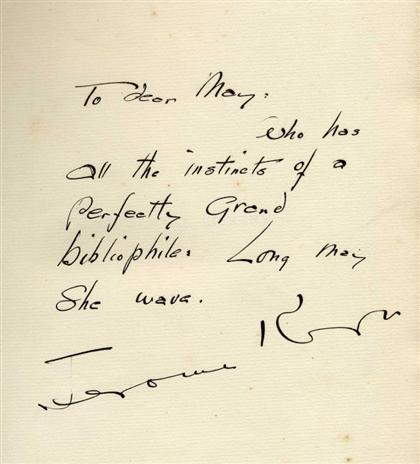 To dear May:
who has
all the instincts of a
Perfectly Grand
bibliophile. Long may
She wave.
Jerome Kern